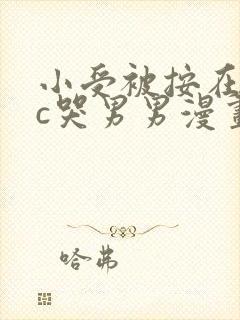 小受被按在
c哭男男漫畫
哈弗